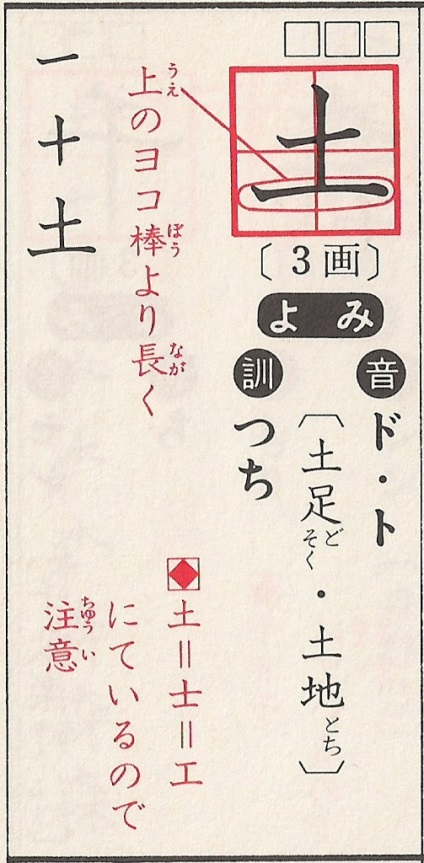 土
〔3画〕
よみ
音 ド・ト
〔土足どそく・土地とち〕
訓 つち
上うえのヨコ棒ぼうより長ながく
一 十 土
◆土＝士＝工
にているので
注意ちゅうい